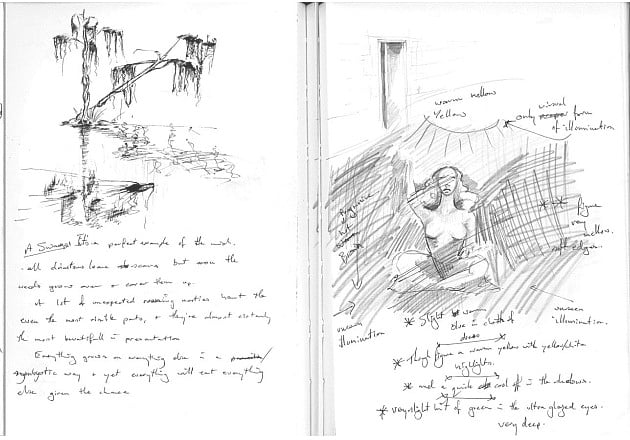 A Swamp
It's a perfect example of the mind.
all disasters leave scars but soon the
weeds grows over + cover them up.
A lot of unexpected nasties haunt the
even the most stable parts, + they're almost certainly
the most beautiful in presentation
Everything grows on everything else in a
symbiotic way + yet everything will eat everything
else given the chance.
warm mellow
yellow
visual
only form
of illumination
figure
very
mellow.
soft edges.
unseen
illumination
unseen
illumination.
* Slight warm
blue in cloth of
dress
* Though figure a warm yellow with yellow/white
highlights.
* and a quick cool off in the shadows.
* very slight hint of green in the ultra glazed eyes.
very deep.